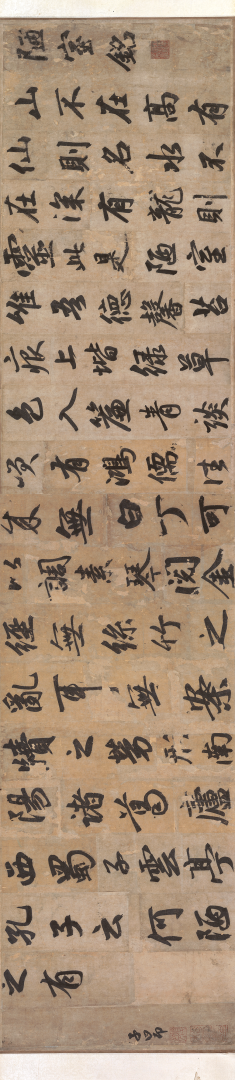 陋室銘
山不在高有
仙則名水不
在深有龍則
靈此是陋室
唯吾德馨苔
痕上堦綠草
色入簾青談
笑有鴻儒往
來無白丁可
以調素琴閱金
經無絲竹之
亂耳無案
牘之勞形南
陽諸葛廬
西蜀子雲亭
孔子云何陋
之有
子昂